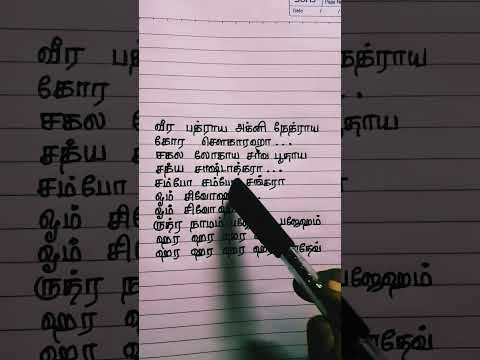 வீர பத்ராய அக்னி நேத்ராய
கோர சௌகாரஹா...
சகல லோகாய சர்வ பூதாய
சத்ய சாஷ்டாத்கரா...
சம்போ சம்போ சங்கரா
ஓம் சிவோஹம்
ஓம் சிவோஹம்
ருத்ர நாமம் பஜேஹம்
ஹர ஹர ஹர
ஹர ஹர ஹர ஹர
Date